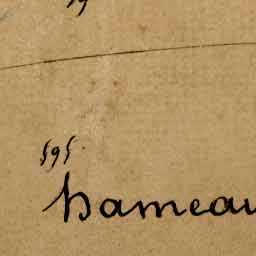 595
hameau